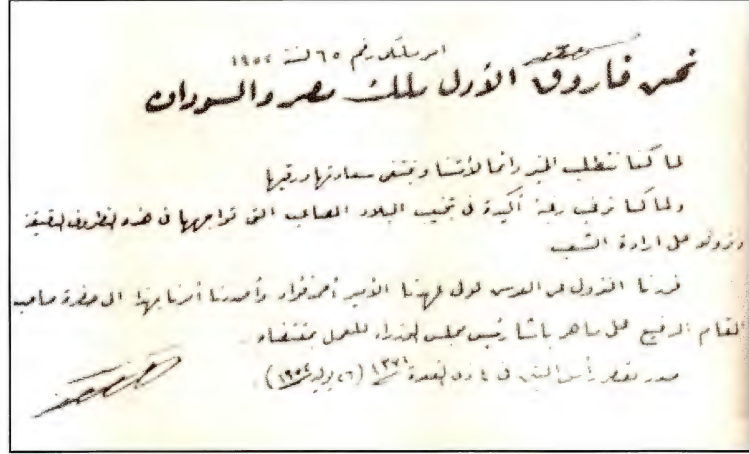 امر ملكى رقم ٦٥ لسنة ١٩٥٢
نحن فاروق الأول ملك مصر والسودان
لما كنا نتطلب الخير دائما لأمتنا ونبتغى سعادتها ورقيها
ولما كنا نرغب رغبة أكيدة فى تجنيب البلاد المصاعب التى تواجهها فى هذه الظروف الدقيقة
ونزولا على ارادة الشعب
قررنا النزول عن العرش لولى عهدنا الأمير أحمد فؤاد وأصدرنا أمرنا بهذا الى حضرة صاحب
المقام الرفيع على ماهر باشا رئيس مجلس الوزراء للعمل بمقتضاه
صدر بقصر رأس التين فى ٤ ذى القعدة ١٣٧١ (٢٦ يوليو ١٩٥٢)